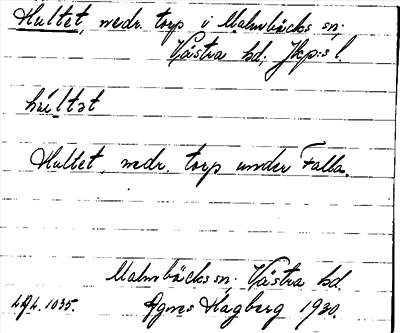 Hultet, nedr. torp i Malmbäcks sn;
Västra hd; Jkp:s l.
hú̱ltət
Hultet, nedr. torp under Falla.
Malmbäcks sn; Västra hd.
Agnes Hagberg 1930.